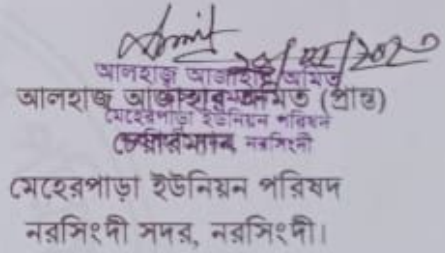 আলহাজ্ব আজাহার অমিত
আলহাজ্ব আজাহার অমিত (প্রান্ত)
মেহেরপাড়া ইউনিয়ন পরিষদ
চেয়ারম্যান
নরসিংদী
মেহেরপাড়া ইউনিয়ন পরিষদ
নরসিংদী সদর, নরসিংদী।